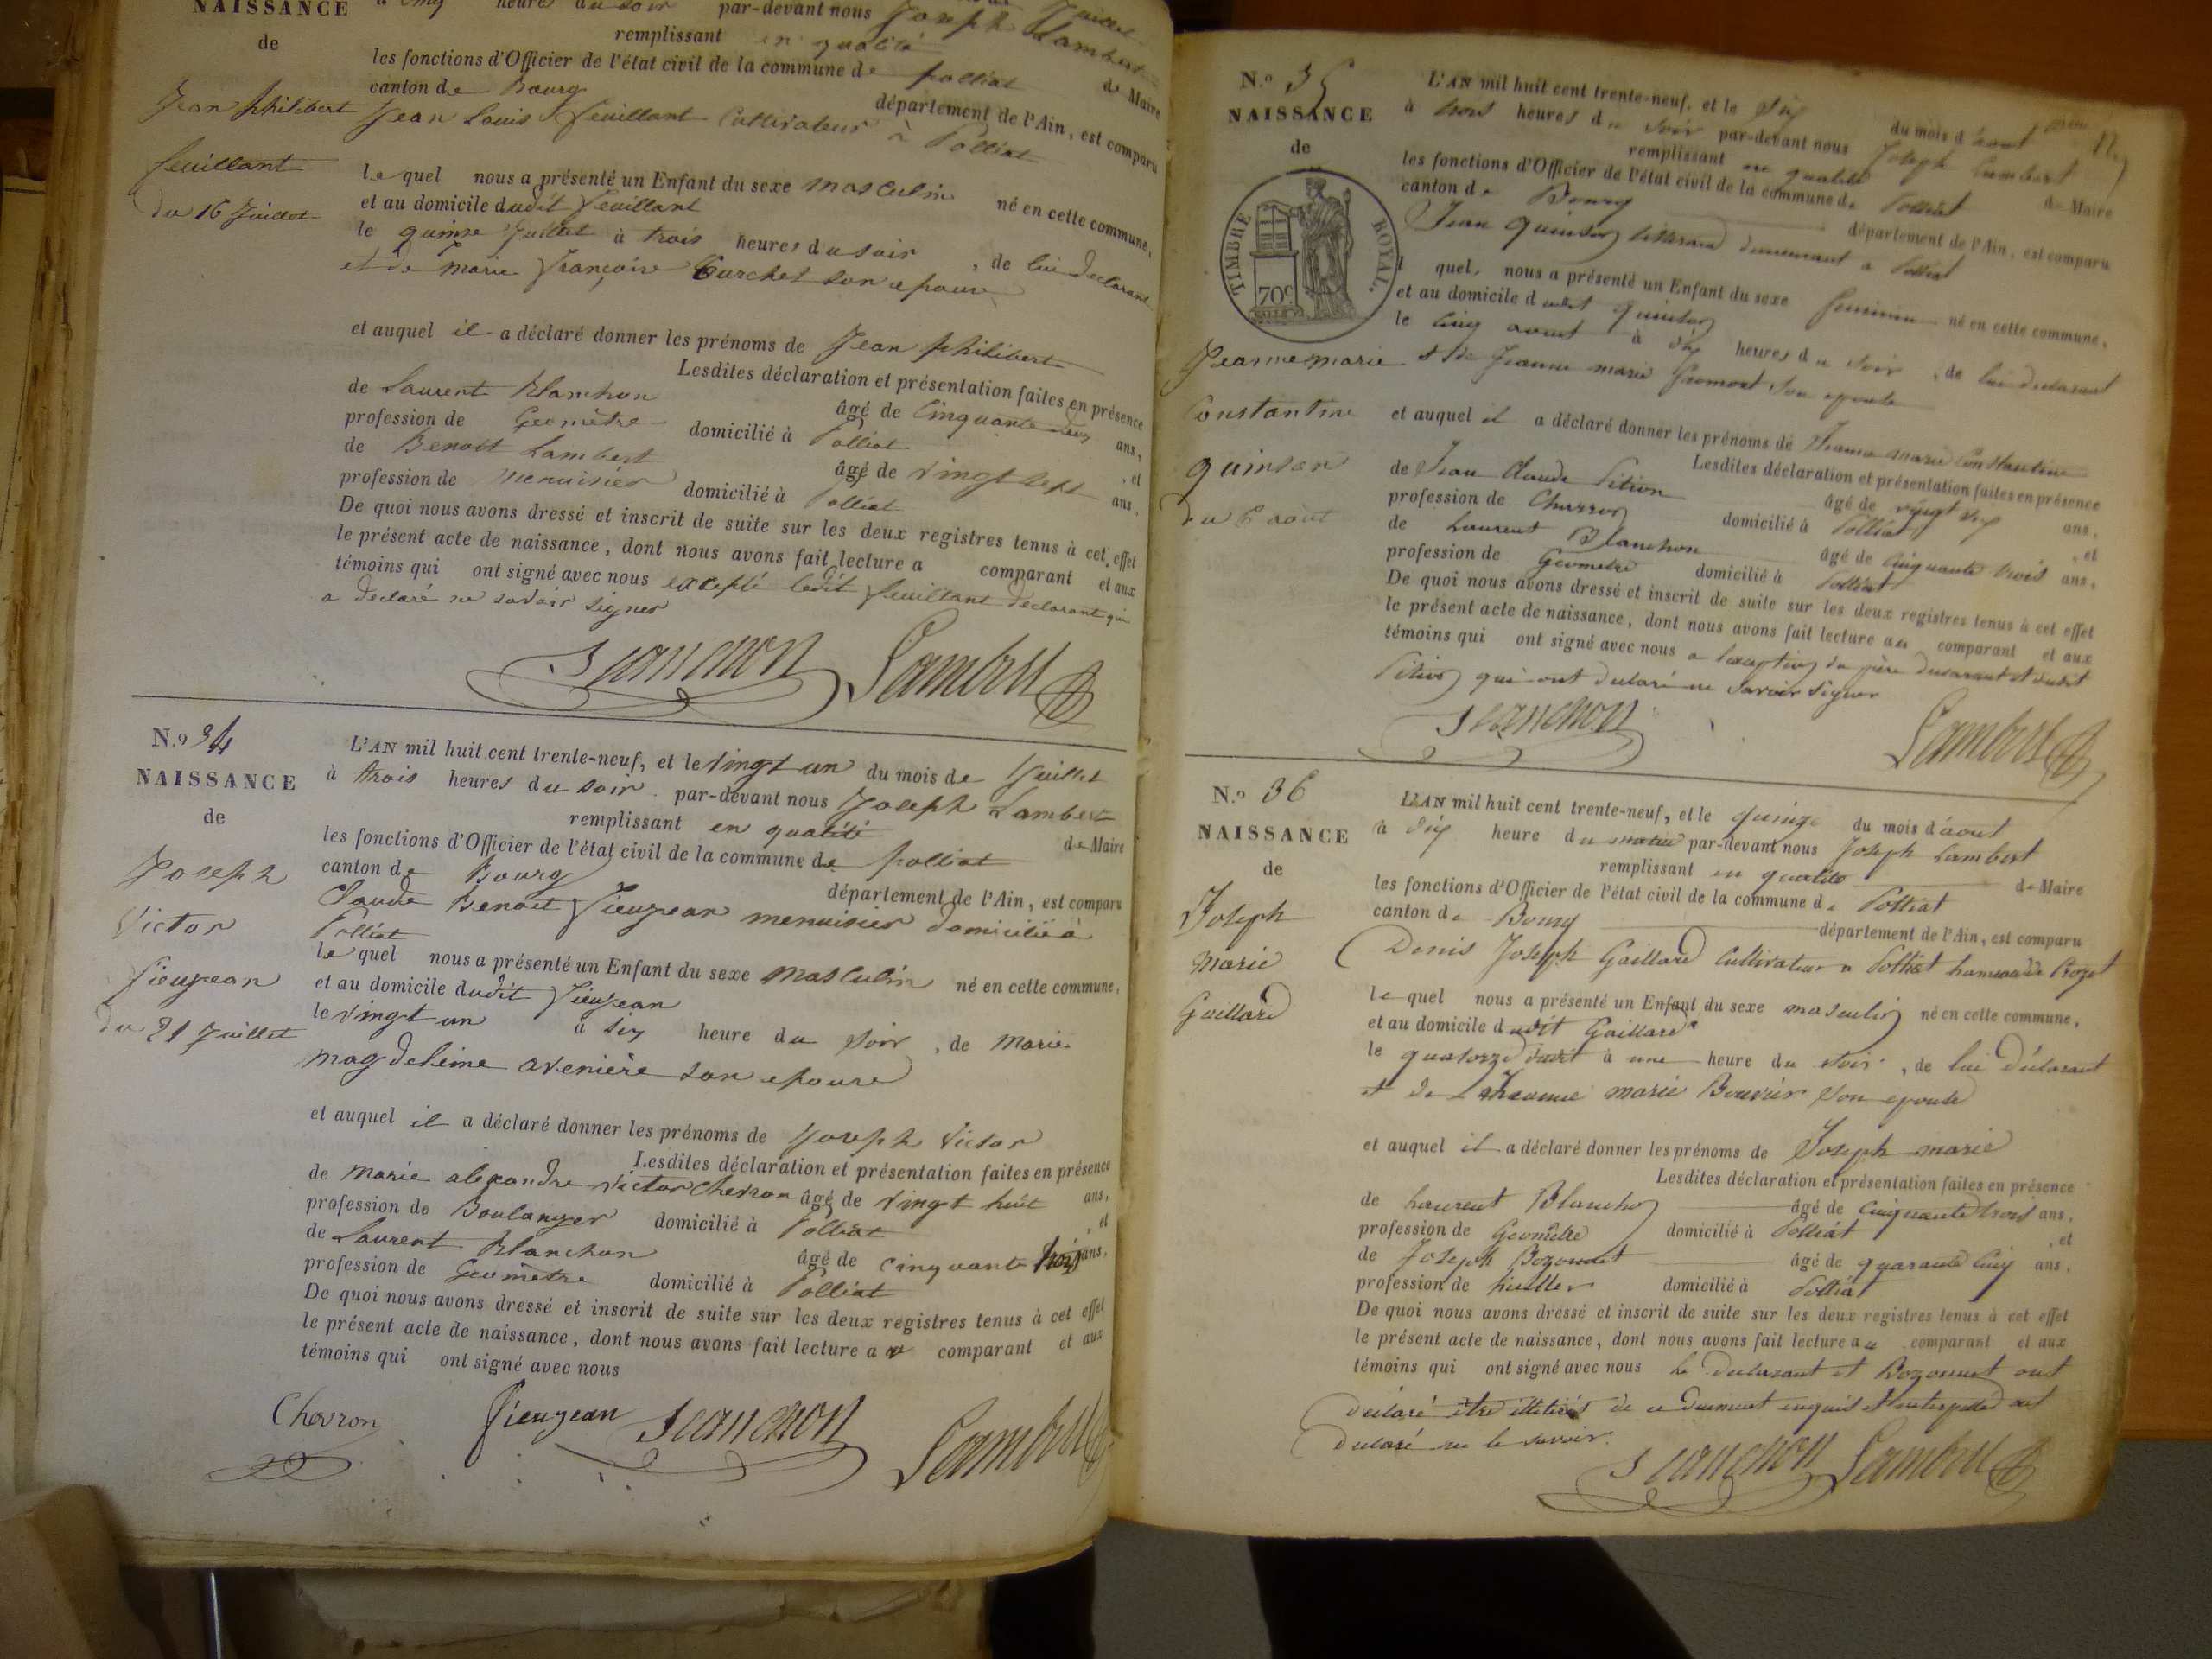 NAISSANCE
de
Jean philibert
feuillant
du 16 Juillet
à cinq heures du soir par-devant nous Joseph Lambert
remplissant en qualité de Maire
les fonctions d'Officier de l'état civil de la commune de polliat
canton de Bourg département de l'Ain, est comparu
Jean Louis feuillant Cultivateur à Polliat
le quel nous a présenté un Enfant du sexe masculin né en cette commune,
et au domicile dudit feuillant
le quinze Juillet à trois heures du soir, de lui déclarant
et de marie françoise Curchet son epouse
et auquel il a déclaré donner les prénoms de Jean philibert
Lesdites déclaration et présentation faites en présence
de Laurent Blanchon âgé de Cinquante deux ans,
profession de Geomètre domicilié à Polliat, et
de Benoit Lambert âgé de vingt sept ans,
profession de menuisier domicilié à Polliat
De quoi nous avons dressé et inscrit de suite sur les deux registres tenus à cet effet
le présent acte de naissance, dont nous avons fait lecture a comparant et aux
témoins qui ont signé avec nous excepté ledit feuillant declarant qui
a declaré ne savoir signer
Blanchon Lambert
N.º 34
NAISSANCE
de
Joseph
Victor
fieujean
du 21 Juillet
L'AN mil huit cent trente-neuf, et le vingt un du mois de Juillet
à trois heures du soir par-devant nous Joseph Lambert
remplissant en qualité de Maire
les fonctions d'Officier de l'état civil de la commune de polliat
canton de Bourg département de l'Ain, est comparu
Claude Benoit fieujean menuisier domicilié à
Polliat
le quel nous a présenté un Enfant du sexe masculin né en cette commune,
et au domicile dudit fieujean
le vingt un à six heure du soir, de marie
magdeleine avenière son epouse
et auquel il a déclaré donner les prénoms de Joseph Victor
Lesdites déclaration et présentation faites en présence
de marie alexandre victor Chevron âgé de vingt huit ans,
profession de Boulanger domicilié à Polliat, et
de Laurent Blanchon âgé de cinquante trois ans,
profession de Geomètre domicilié à Polliat
De quoi nous avons dressé et inscrit de suite sur les deux registres tenus à cet effet
le présent acte de naissance, dont nous avons fait lecture a comparant et aux
témoins qui ont signé avec nous
Chevron fieujean Blanchon Lambert
N.º 35
NAISSANCE
de
TIMBRE ROYAL.
70c
Jeanne marie
Constantine
quinson
du 6 août
L'AN mil huit cent trente-neuf, et le six du mois d'aout
à trois heures du soir par-devant nous Joseph Lambert
remplissant en qualité de Maire
les fonctions d'Officier de l'état civil de la commune de Polliat
canton de Bourg département de l'Ain, est comparu
Jean quinson demeurant à Polliat
l quel nous a présenté un Enfant du sexe feminin né en cette commune,
et au domicile dudit quinson
le cinq aout à dix heures du soir, de lui declarant
et de Jeanne marie fromont son epouse
et auquel il a déclaré donner les prénoms de Jeanne marie Constantine
Lesdites déclaration et présentation faites en présence
de Jean Claude Pition âgé de vingt six ans,
profession de domicilié à Polliat, et
de Laurent Blanchon âgé de cinquante trois ans,
profession de Geometre domicilié à Polliat
De quoi nous avons dressé et inscrit de suite sur les deux registres tenus à cet effet
le présent acte de naissance, dont nous avons fait lecture au comparant et aux
témoins qui ont signé avec nous a l'exception du père declarant et dudit
Pition qui ont declaré ne savoir signer
Blanchon Lambert
N.º 36
NAISSANCE
de
Joseph
marie
Gaillard
L'AN mil huit cent trente-neuf, et le quinze du mois d'aout
à dix heure du matin par-devant nous Joseph Lambert
remplissant en qualité de Maire
les fonctions d'Officier de l'état civil de la commune de Polliat
canton de Bourg département de l'Ain, est comparu
Denis Joseph Gaillard Cultivateur a Polliat hameau de
le quel nous a présenté un Enfant du sexe masculin né en cette commune,
et au domicile dudit Gaillard
le quatorze dudit à une heure du soir, de lui déclarant
et de marie Bouvier son epouse
et auquel il a déclaré donner les prénoms de Joseph marie
Lesdites déclaration et présentation faites en présence
de Laurent Blanchon âgé de cinquante trois ans,
profession de Geomètre domicilié à Polliat, et
de Joseph Bozonnet âgé de quarante cinq ans,
profession de domicilié à Polliat
De quoi nous avons dressé et inscrit de suite sur les deux registres tenus à cet effet
le présent acte de naissance, dont nous avons fait lecture au comparant et aux
témoins qui ont signé avec nous le declarant et Bozonnet ont
declaré être illétirés de ce enquis et interpellé ont
declaré ne le savoir.
Blanchon Lambert